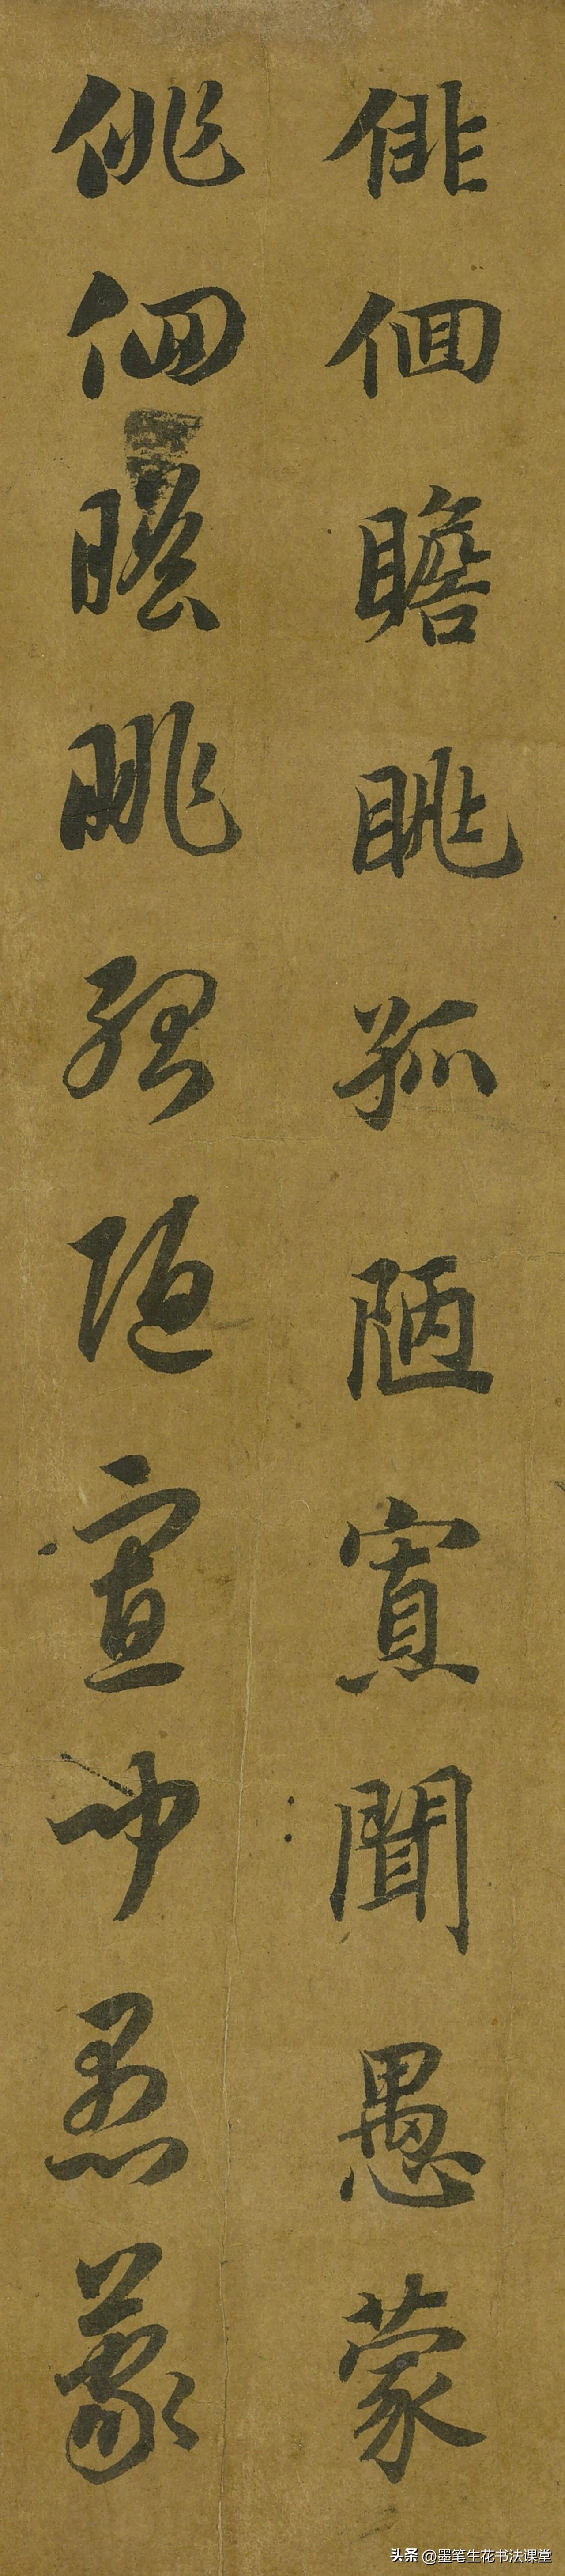 俳佪瞻眺孤陋寡聞愚蒙
俳佪瞻眺孤陋寡聞愚蒙
头条 @墨笔生花书法课堂